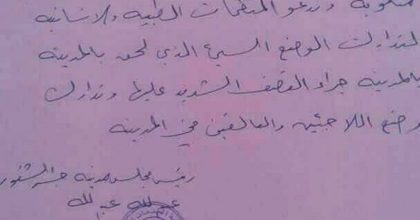 وندعو المنظمات الطبية والانسانية
لتدارك الوضع السيئ الذي لحق بالمدينة
بالمدينة جراء القصف الشديد عليها وتدارك
وضع اللاجئين والعالقين في المدينة
رئيس مجلس مدينة جسر الشغور
عبدالله عبدالله